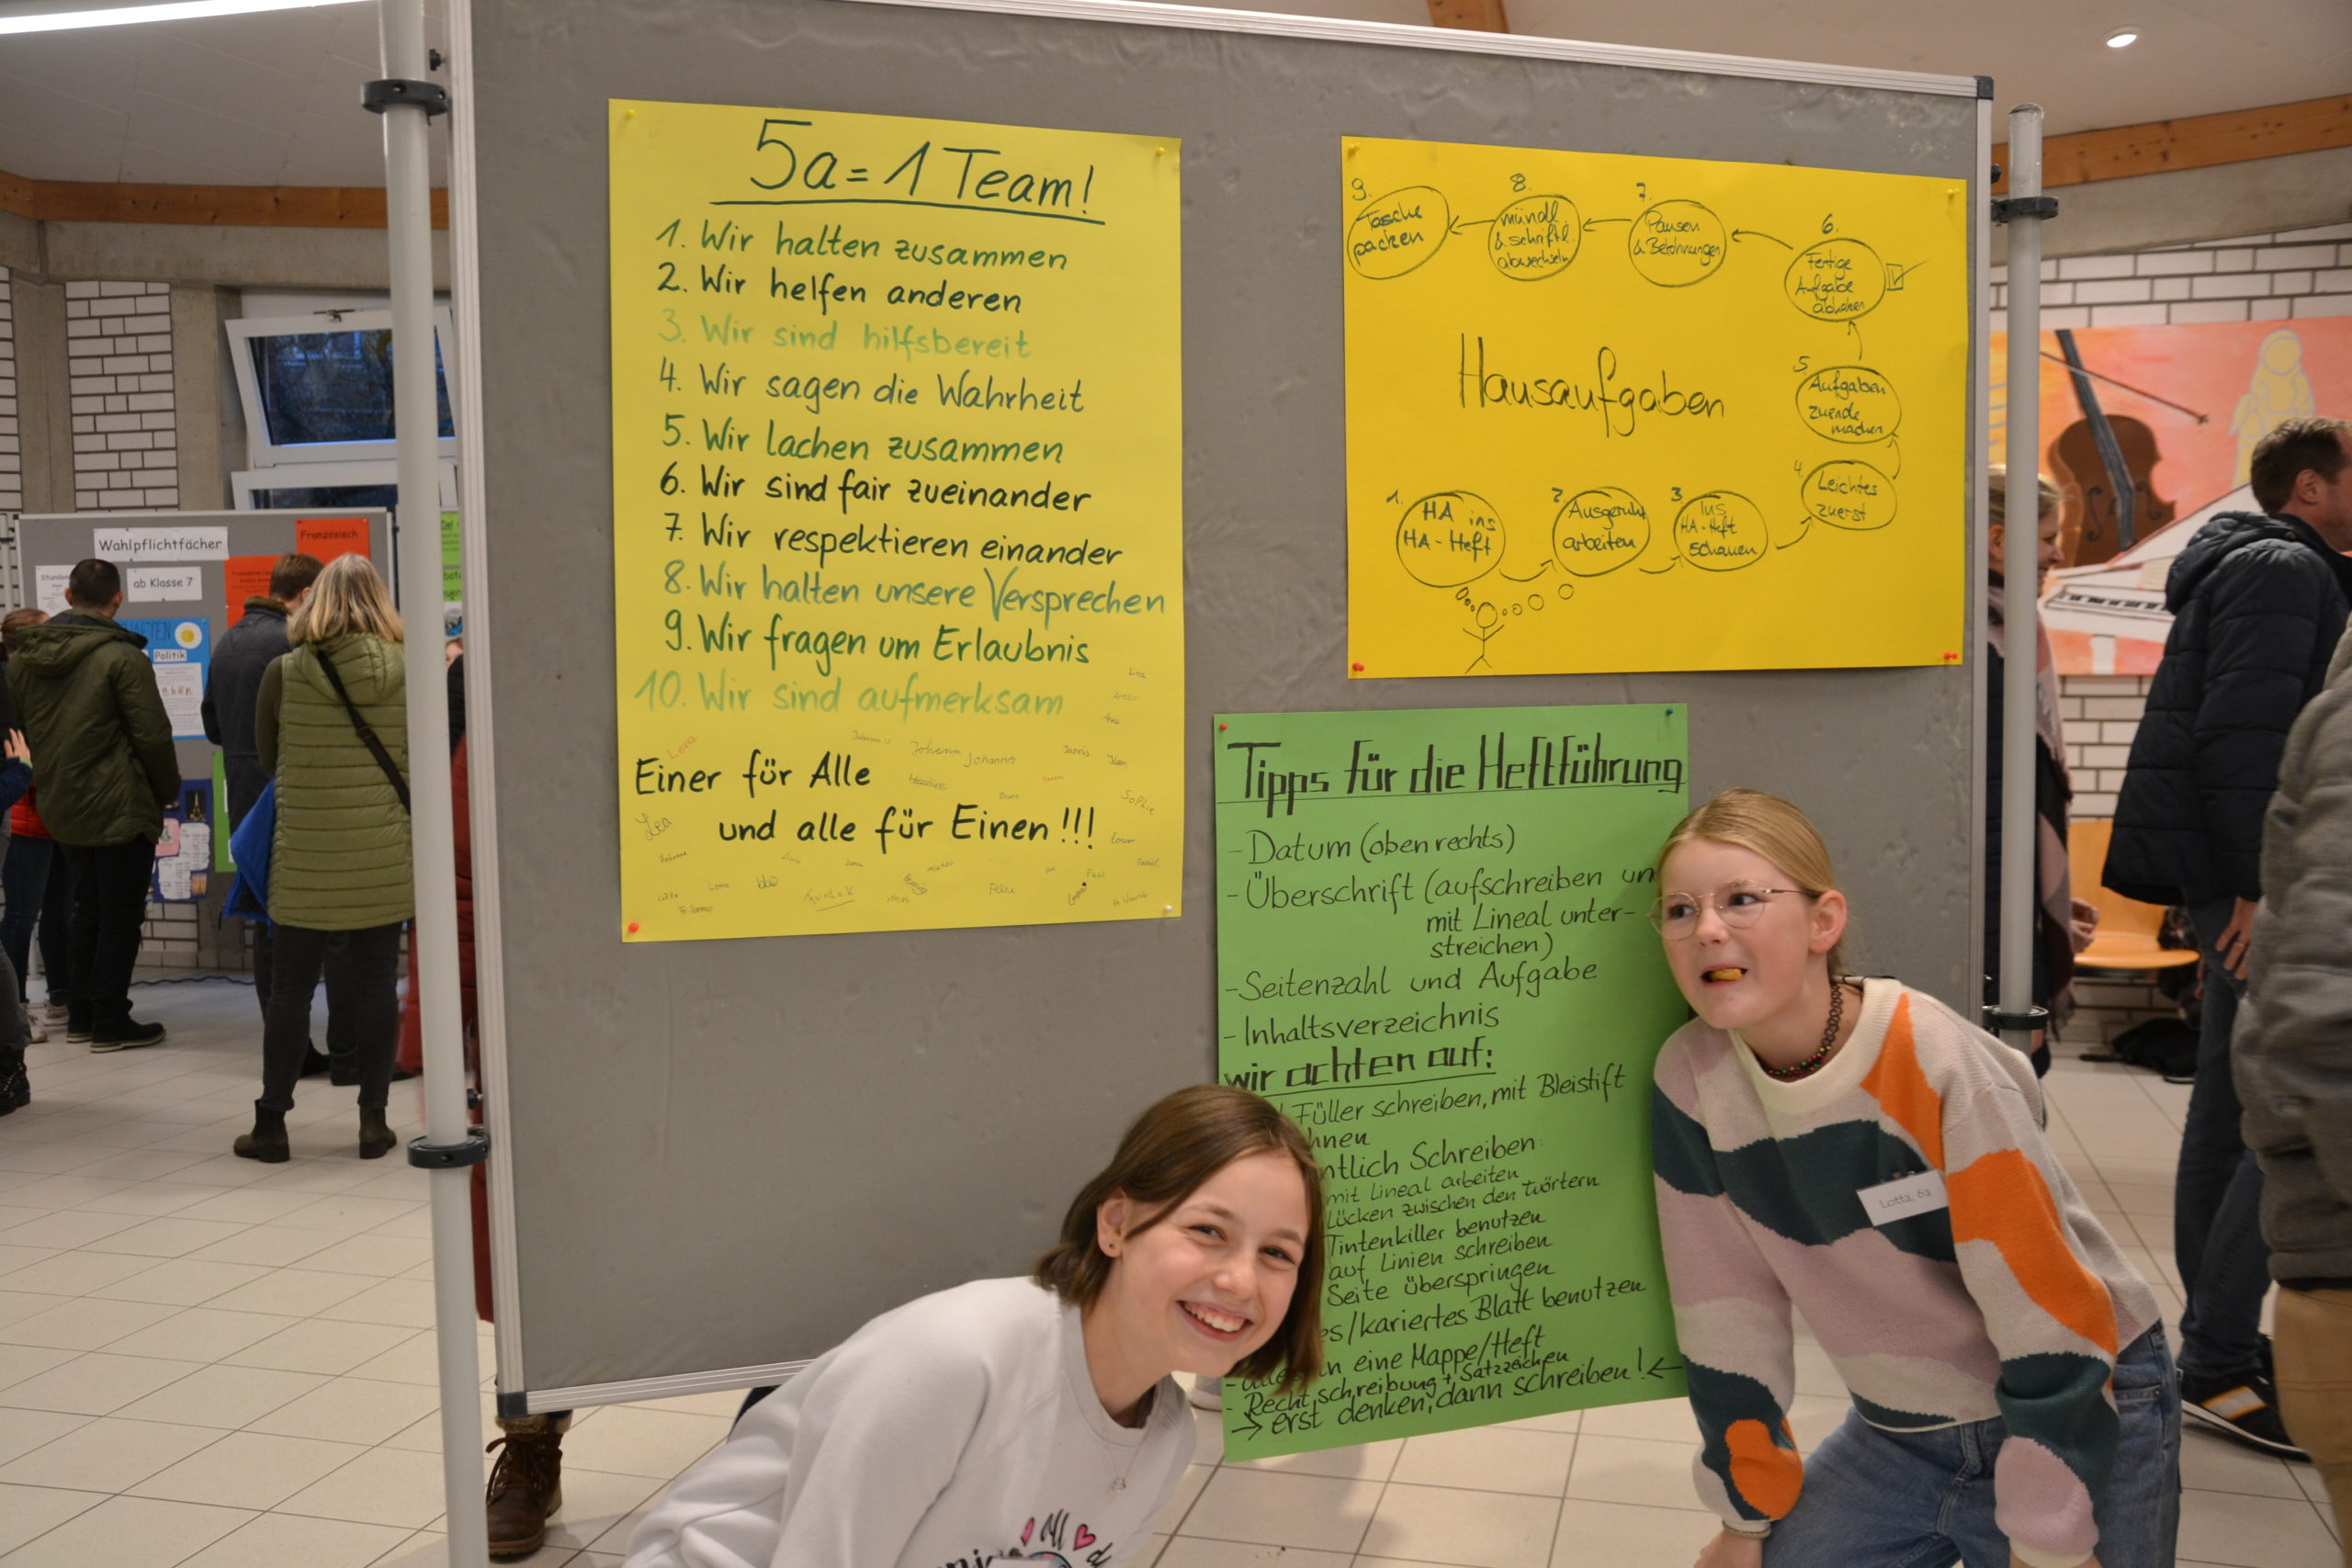 5a = 1 Team!
1. Wir halten zusammen
2. Wir helfen anderen
3. Wir sind hilfsbereit
4. Wir sagen die Wahrheit
5. Wir lachen zusammen
6. Wir sind fair zueinander
7. Wir respektieren einander
8. Wir halten unsere Versprechen
9. Wir fragen um Erlaubnis
10. Wir sind aufmerksam
Einer für Alle
und alle für Einen!!!
Lena
Lina
Johann
Johannes
Jannis
Sophie
Lea
Lotta
Felix
Paul
Hausaufgaben
1.
HA ins
HA-Heft
2.
Ausgeruht
arbeiten
3.
Ins
HA-Heft
schauen
4.
Leichtes
zuerst
5.
Aufgaben
zuende
machen
6.
Fertige
Aufgabe
abhaken
7.
Pausen
& Belohnungen
8.
mündl.
& schriftl.
abwechseln
9.
Tasche
packen
Tipps für die Heftführung
- Datum (oben rechts)
- Überschrift (aufschreiben un
mit Lineal unter-
streichen)
- Seitenzahl und Aufgabe
- Inhaltsverzeichnis
wir achten auf:
Füller schreiben, mit Bleistift
hnen
ntlich Schreiben
mit Lineal arbeiten
Lücken zwischen den Wörtern
Tintenkiller benutzen
auf Linien schreiben
Seite überspringen
es/kariertes Blatt benutzen
- alles in eine Mappe/Heft
- Rechtschreibung + Satzzeichen
→ erst denken, dann schreiben! ←
Lotta, 6a
Wahlpflichtfächer
ab Klasse 7
Französisch
Politik